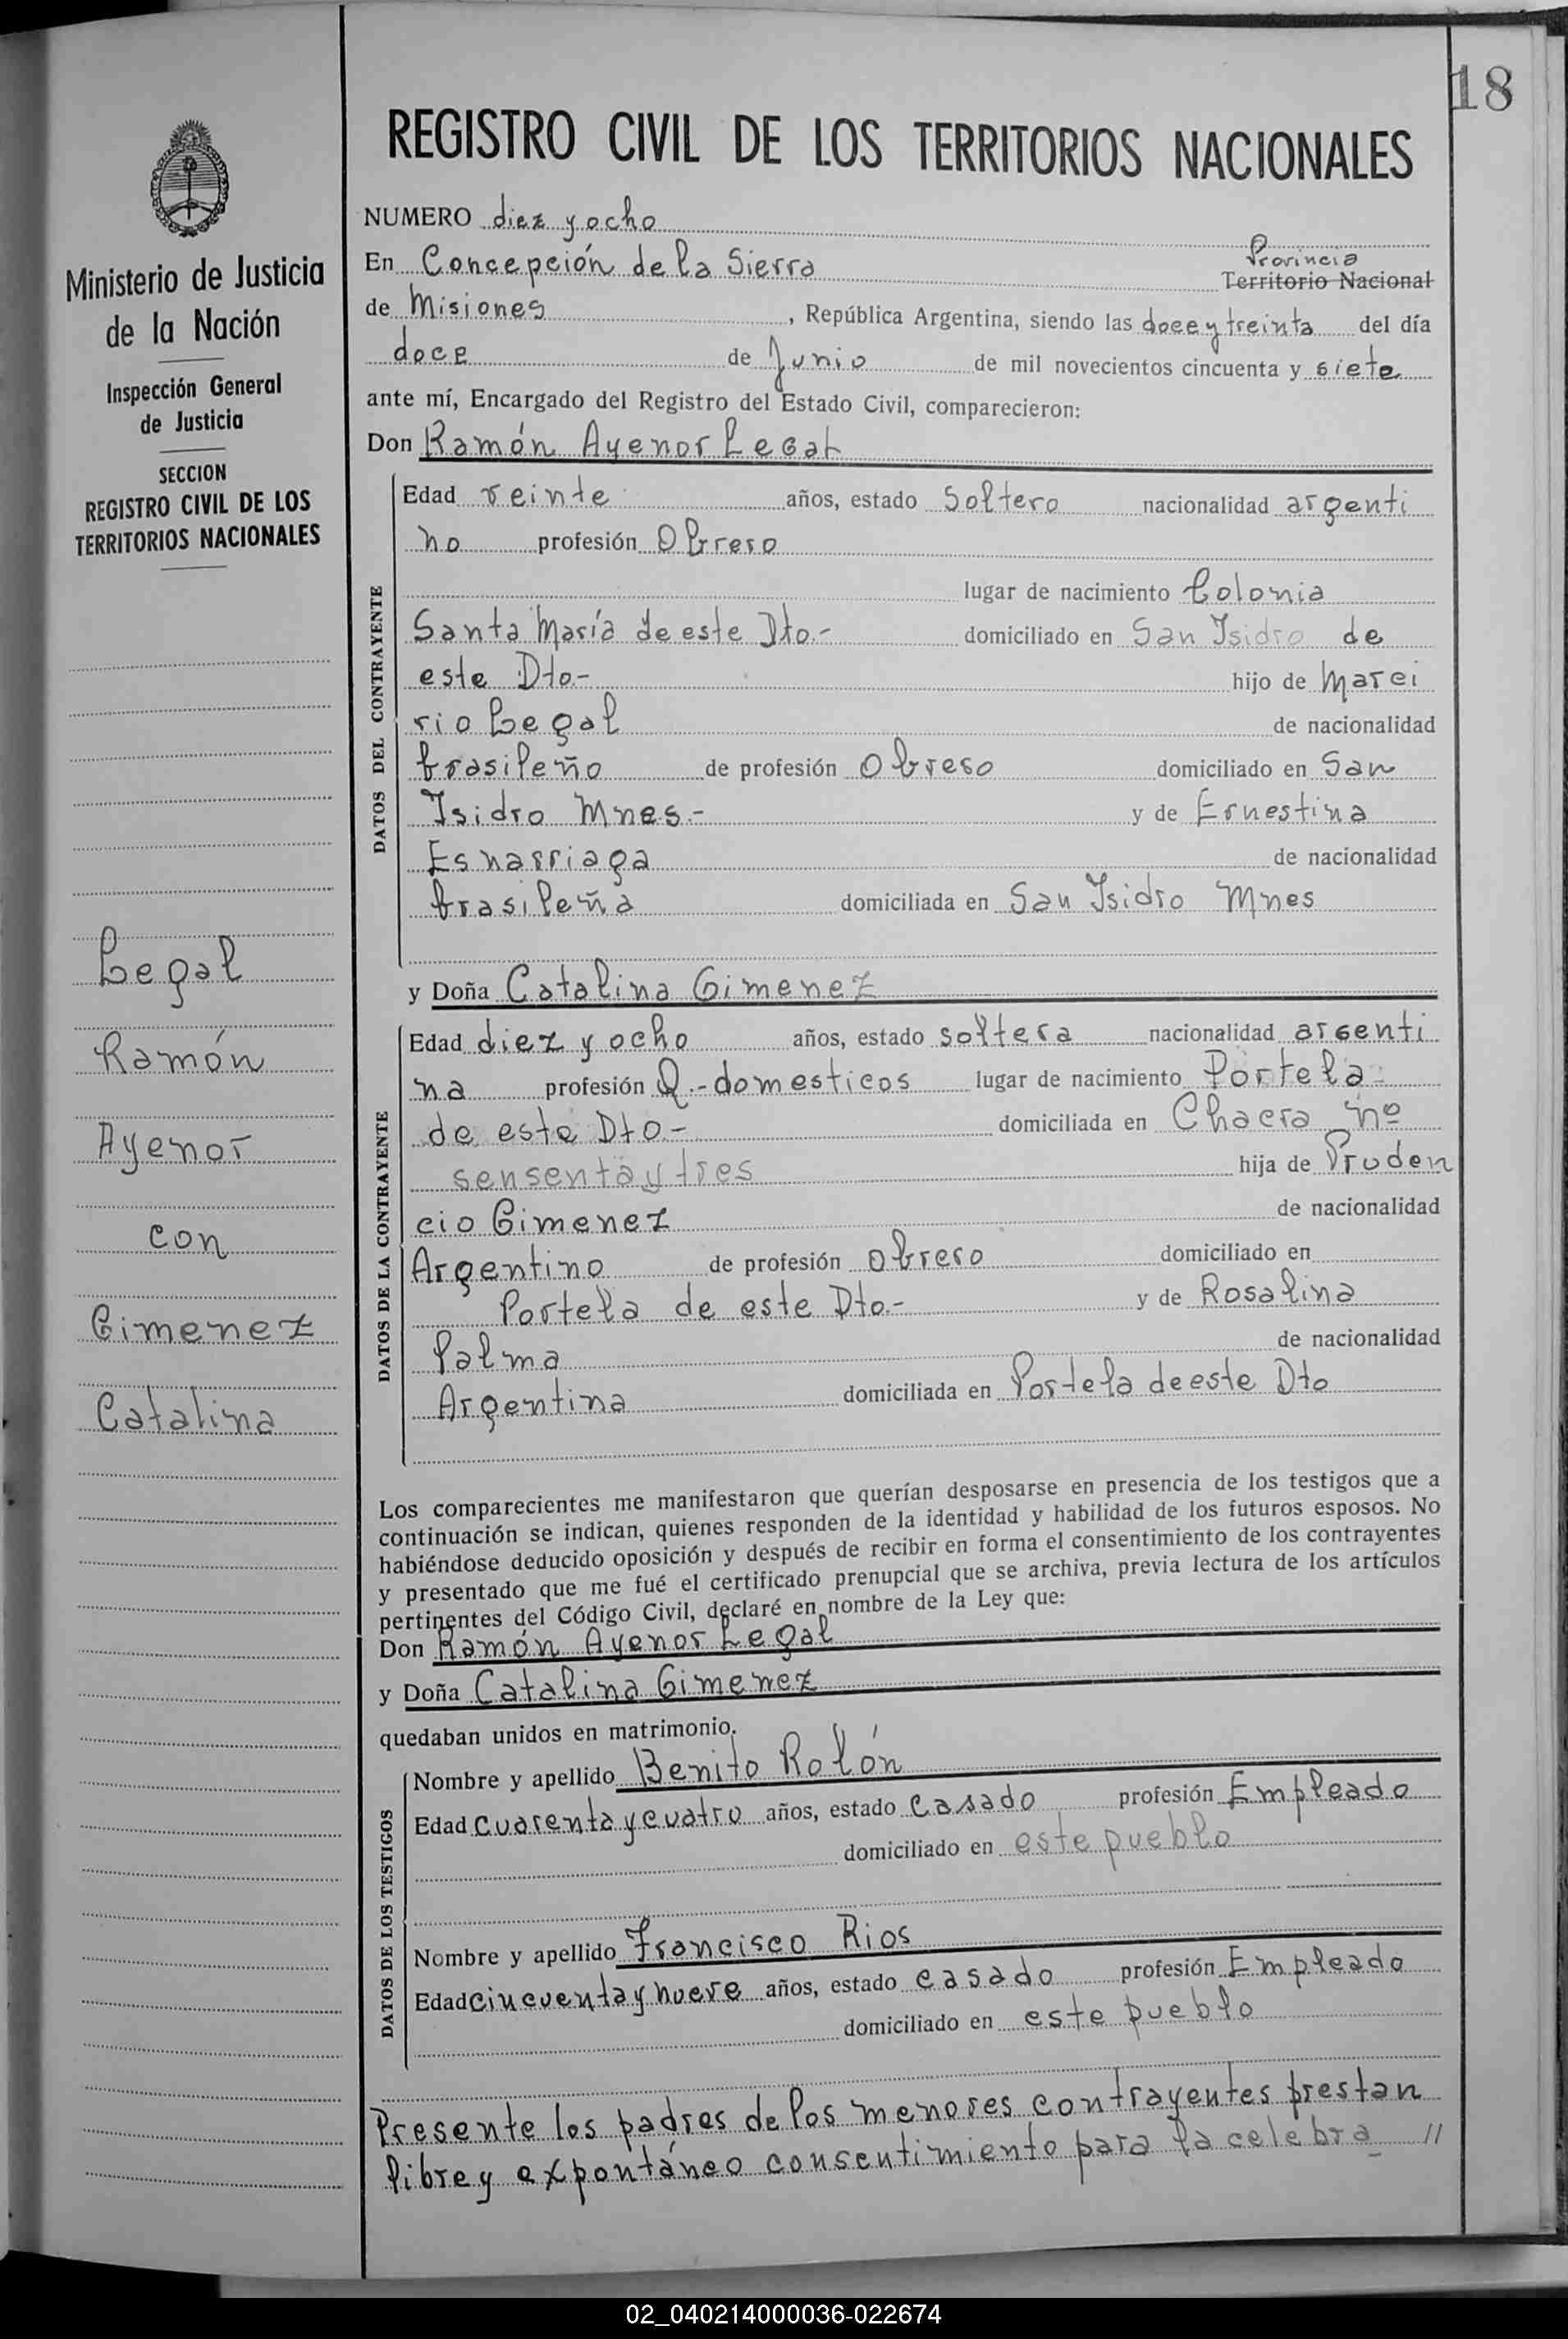 18
REGISTRO CIVIL DE LOS TERRITORIOS NACIONALES
Ministerio de Justicia
de la Nación
Inspección General
de Justicia
SECCION
REGISTRO CIVIL DE LOS
TERRITORIOS NACIONALES
Legal
Ramón
Ayenor
con
Gimenez
Catalina
NUMERO diez y ocho
Provincia
En Concepción de la Sierra Territorio Nacional
de Misiones, República Argentina, siendo las doce y treinta del día
doce de Junio de mil novecientos cincuenta y siete
ante mí, Encargado del Registro del Estado Civil, comparecieron:
Don Ramón Ayenor Legal
DATOS DEL CONTRAYENTE
Edad veinte años, estado Soltero nacionalidad argenti
no profesión Obrero
lugar de nacimiento Colonia
Santa María de este Dto.- domiciliado en San Isidro de
este Dto.- hijo de Marci
rio Legal de nacionalidad
brasileño de profesión Obrero domiciliado en San
Isidro Mnes.- y de Ernestina
Esnarriaga de nacionalidad
brasileña domiciliada en San Isidro Mnes
y Doña Catalina Gimenez
DATOS DE LA CONTRAYENTE
Edad diez y ocho años, estado soltera nacionalidad argenti
na profesión Q.-domesticos lugar de nacimiento Portela
de este Dto- domiciliada en Chacra nº
sensenta y tres hija de Pruden
cio Gimenez de nacionalidad
Argentino de profesión obrero domiciliado en
Portela de este Dto.- y de Rosalina
Palma de nacionalidad
Argentina domiciliada en Portela de este Dto
Los comparecientes me manifestaron que querían desposarse en presencia de los testigos que a
continuación se indican, quienes responden de la identidad y habilidad de los futuros esposos. No
habiéndose deducido oposición y después de recibir en forma el consentimiento de los contrayentes
y presentado que me fué el certificado prenupcial que se archiva, previa lectura de los artículos
pertinentes del Código Civil, declaré en nombre de la Ley que:
Don Ramón Ayenor Legal
y Doña Catalina Gimenez
quedaban unidos en matrimonio.
DATOS DE LOS TESTIGOS
Nombre y apellido Benito Rolón
Edad cuarenta y cuatro años, estado casado profesión Empleado
domiciliado en este pueblo
Nombre y apellido Francisco Rios
Edad cincuenta y nueve años, estado casado profesión Empleado
domiciliado en este pueblo
Presente los padres de los menores contrayentes prestan
libre y expontáneo consentimiento para la celebra //
02_040214000036-022674